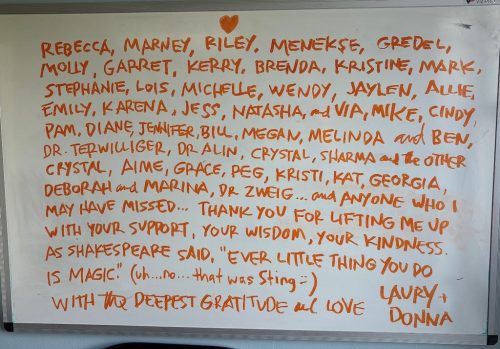 REBECCA, MARNEY, RILEY, MENEKSE, GREDEL,
MOLLY, GARRET, KERRY, BRENDA, KRISTINE, MARK,
STEPHANIE, LOIS, MICHELLE, WENDY, JAYLEN, ALLIE,
EMILY, KARENA, JESS, NATASHA, and VIA, MIKE, CINDY,
PAM, DIANE, JENNIFER, BILL, MEGAN, MELINDA and BEN,
DR. TERWILLIGER, DR ALIN, CRYSTAL, SHARMA and the OTHER
CRYSTAL, AIME, GRACE, PEG, KRISTI, KAT, GEORGIA,
DEBORAH and MARINA, DR ZWEIG... and ANYONE WHO I
MAY HAVE MISSED... THANK YOU FOR LIFTING ME UP
WITH YOUR SUPPORT, YOUR WISDOM, YOUR KINDNESS.
AS SHAKESPEARE SAID, "EVER LITTLE THING YOU DO
IS MAGIC" (uh...no...that was Sting :-)
WITH THE DEEPEST GRATITUDE and LOVE LAURY +
DONNA